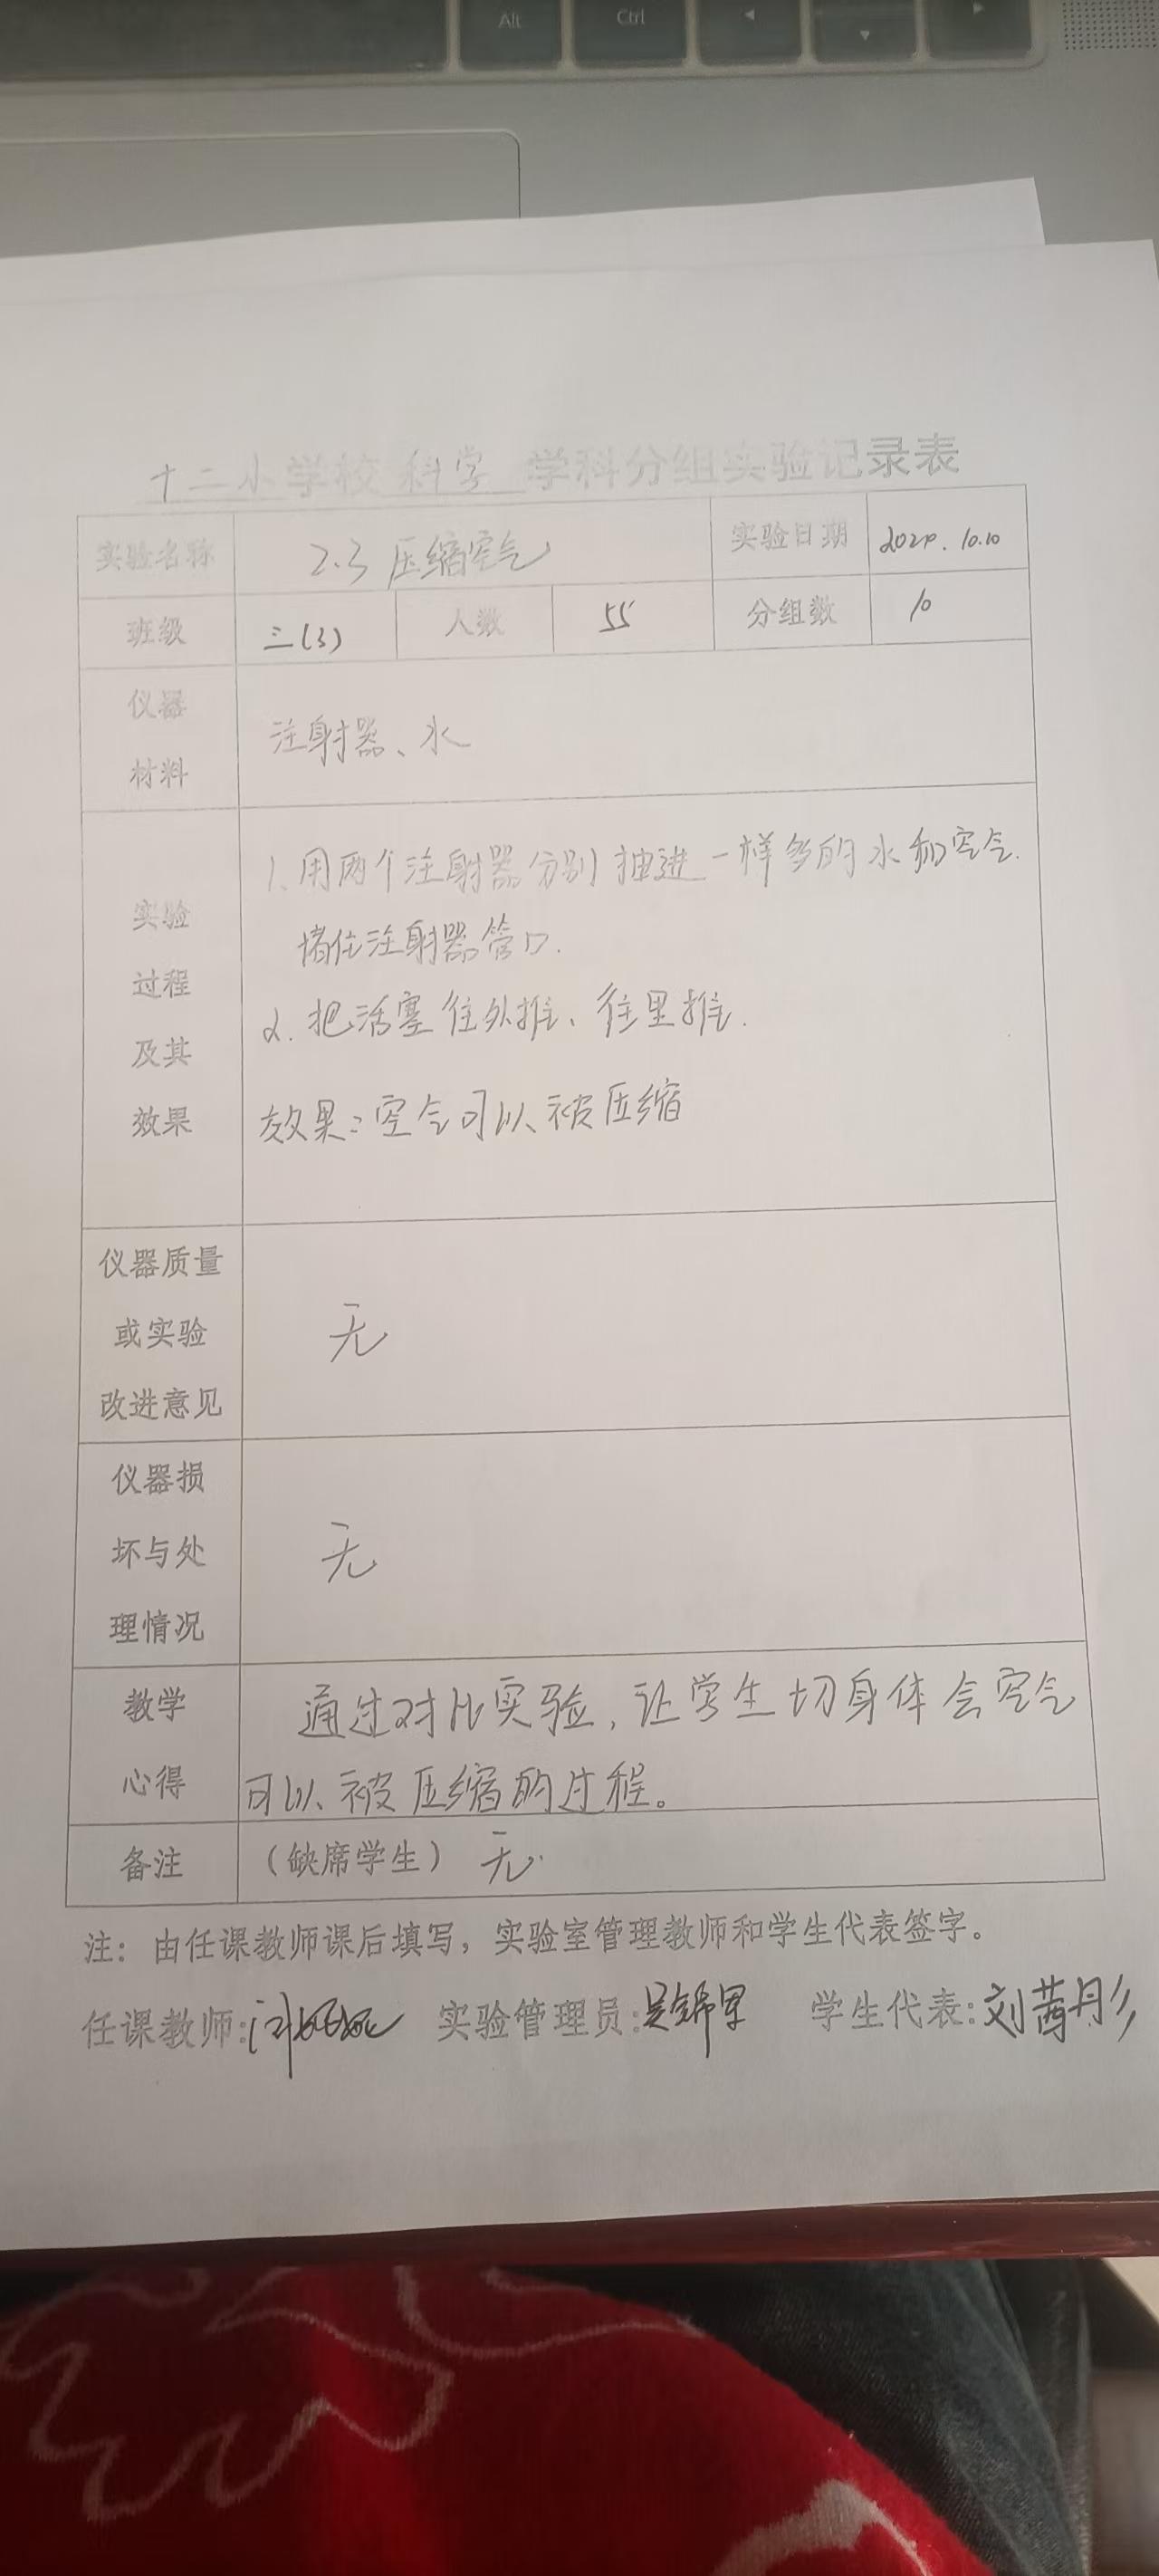 Alt Ctrl
十二小学校 科学 学科分组实验记录表
实验名称 2.3 压缩空气 实验日期 10.10
班级 三(3) 人数 55 分组数 10
仪器
材料
注射器、水
实验
过程
及其
效果
1.用两个注射器分别抽进一样多的水和空气.
堵住注射器管口.
2.把活塞往外推、往里推.
效果:空气可以被压缩
仪器质量
或实验
改进意见
无
仪器损
坏与处
理情况
无
教学
心得
通过对比实验,让学生切身体会空气
可以被压缩的过程。
备注 (缺席学生) 无.
注:由任课教师课后填写,实验室管理教师和学生代表签字。
任课教师: 实验管理员: 学生代表:刘茜彤